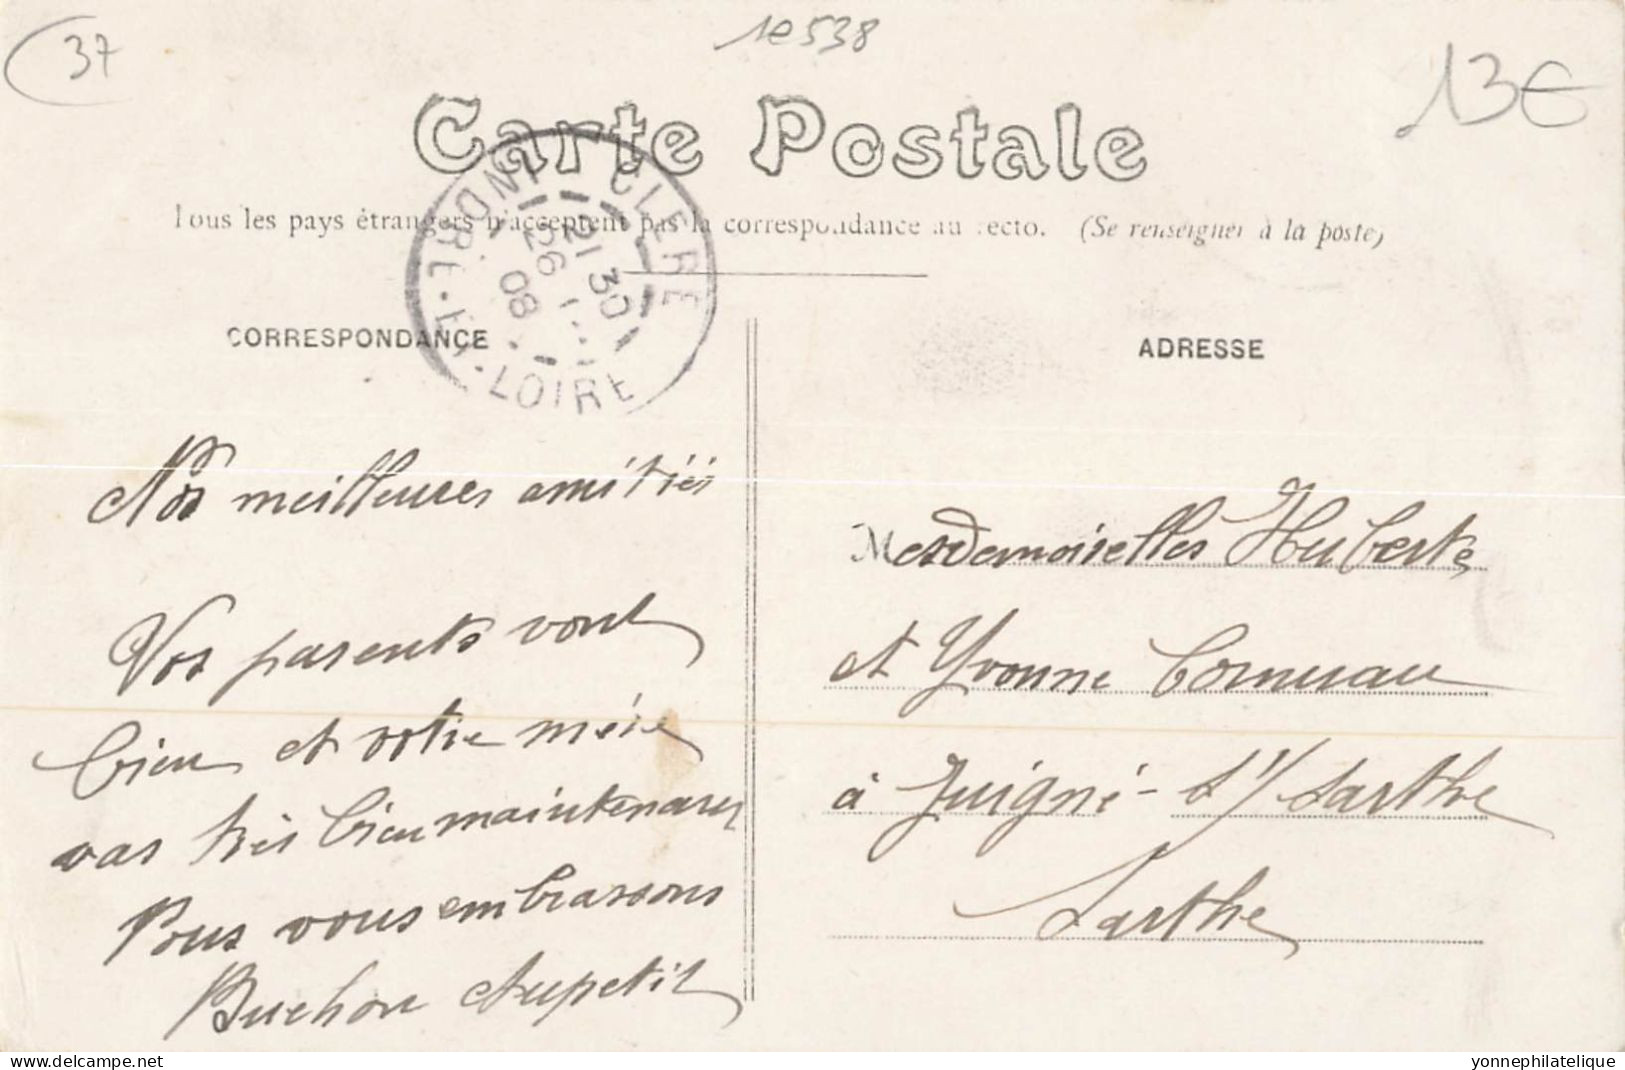 37
10538
13€
Carte Postale
Tous les pays étrangers n'acceptent pas la correspondance au recto. (Se renseigner à la poste)
CORRESPONDANCE
ADRESSE
INDRE-ET-LOIRE
21 30
26
08
Nos meilleures amitiés
Vos parents vont
bien et votre mère
vas très bien maintenant
Nous vous embrassons
Buchon Aupetit
Mesdemoiselles Huberte
et Yvonne Cornuau
à Juigné-s/ Sarthe
Sarthe
www.delcampe.net
yonnephilatelique